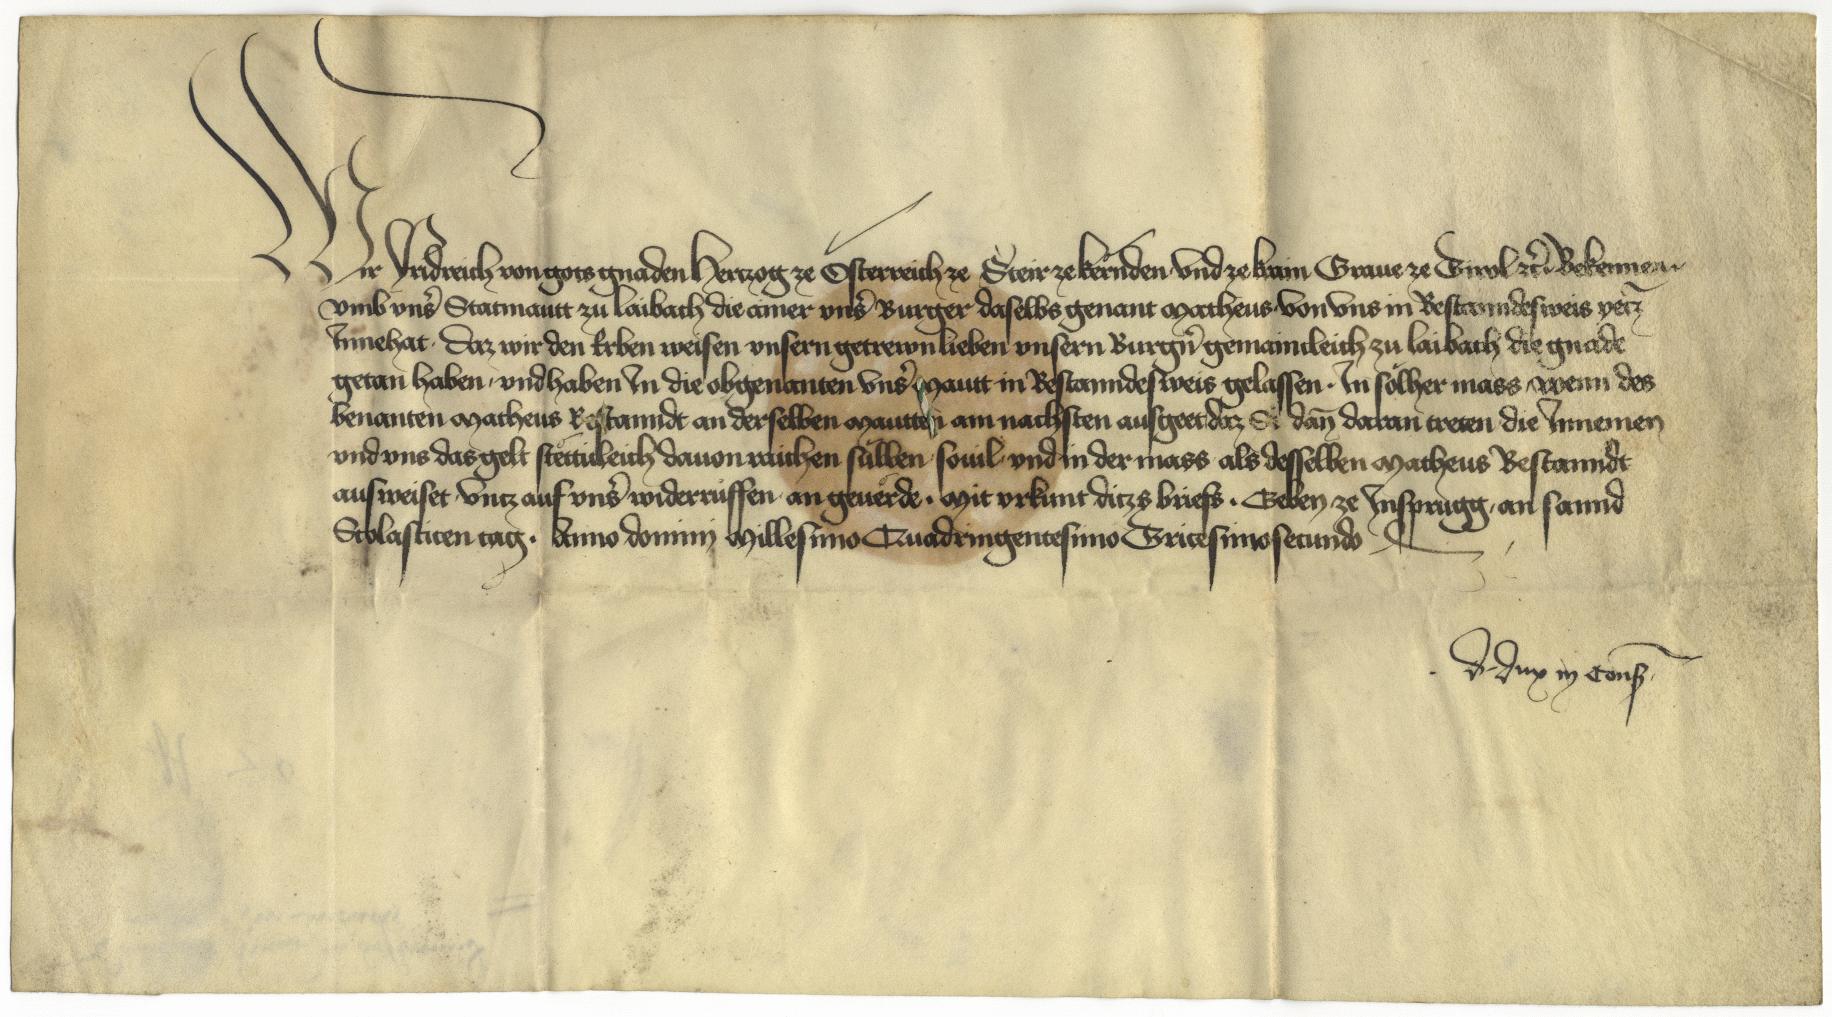 Wir Fridreich von gots gnaden Hertzog ze Österreich ze Steir ze kernden vnd ze krain Graue ze Tirol etc. Bekennen
vmb vnsʼ Statmautt zu laibach die ainer vnsʼ Burger daselbs genant Matheus von vns in Bestanndesweis yecz
Innehat. Daz wir den Erben weisen vnsern getrewn lieben vnsern Burgʼn gemainleich zu laibach die gnade
getan haben, vnd haben In die obgenanten vnsʼ Mautt in Bestanndesweis gelassen. In sölher mass, wenn des
benanten Matheus Bestanndt an derselben Mautten am nachsten ausgeet daz Si dan̄ daran treten die Innemen
vnd vns das gelt stettikleich dauon raichen süllen souil vnd in der mass als desselben Matheus Bestanndt
ausweiset vncz auf vnsʼ widerrüffen an geuerde. Mit vrkunt diczs briefs. Geben ze Insprugg, an sannd
Scolasticen tag. Anno domini Millesimo Quadringentesimo Tricesimosecundo
d. dux in Cons.